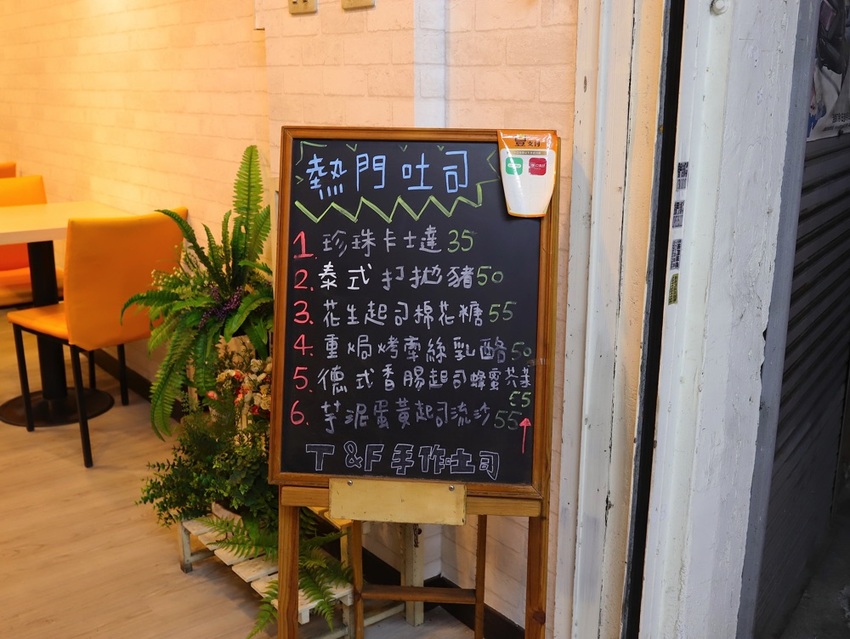 熱門吐司
1. 珍珠卡士達 35
2. 泰式打拋豬 50
3. 花生起司棉花糖 55
4. 重焗烤牽絲乳酪 50
5. 德式香腸起司蜂蜜芥茉
55
6. 芋泥蛋黃起司流沙 55
T&F 手作吐司